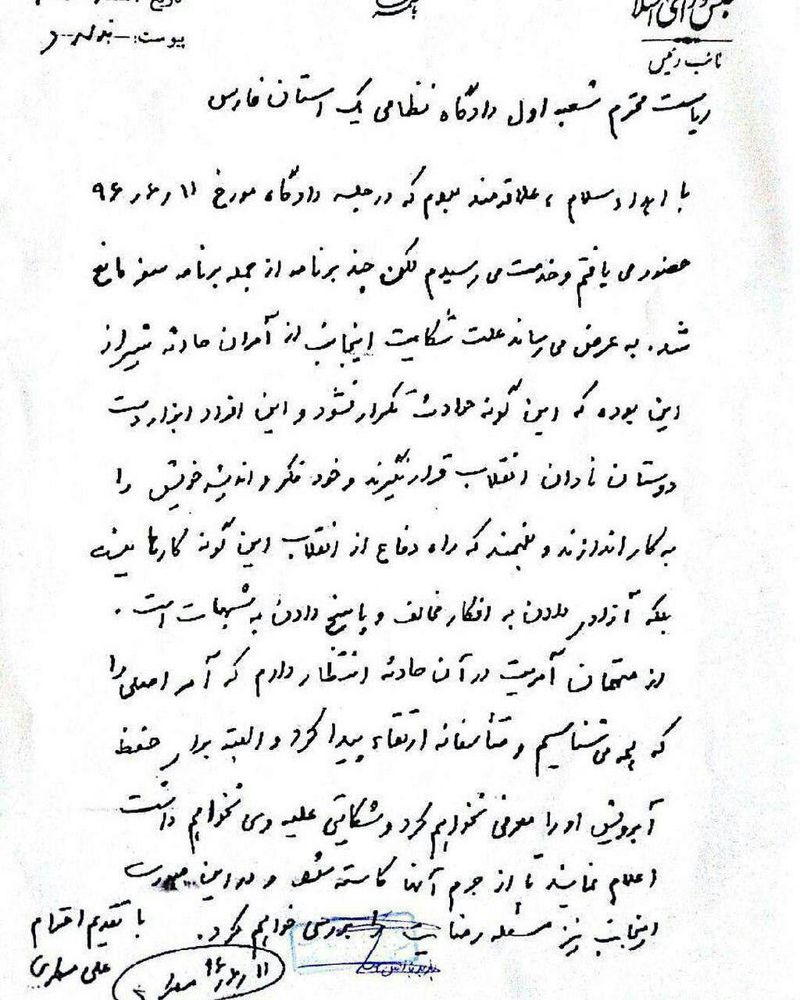 مجلس شورای اسلامی
نائب رئیس
تاریخ
پیوست: ندارد
ریاست محترم شعبه اول دادگاه نظامی یک استان فارس
با اهداء سلام، علاقمند بودم که در جلسه دادگاه مورخ ۹۶ر۶ر۱۱
حضور می یافتم و خدمت می رسیدم لکن چند برنامه از جمله برنامه سفر مانع
شد. به عرض می رساند علت شکایت اینجانب از آمران حادثه شیراز
این بوده که این گونه حوادث تکرار نشود و این افراد ابزار دست
دوستان نادان انقلاب قرار نگیرند و خود فکر و اندیشه خویش را
به کار اندازند و بفهمند که راه دفاع از انقلاب این گونه کارها نیست
بلکه آزادی دادن به افکار مخالف و پاسخ دادن به شبهات است.
از متهمان آمریت در آن حادثه انتظار دارم که آمر اصلی را
که همه می شناسیم و متأسفانه ارتقاء پیدا کرد و البته برای حفظ
آبرویش او را معرفی نخواهم کرد و شکایتی علیه وی نخواهم داشت
اعلام نمایند تا از جرم آنها کاسته شود و در این صورت
اینجانب نیز مسئله رضایت را بررسی خواهم کرد.
با تقدیم احترام
علی مطهری
۹۶ر۶ر۱۱